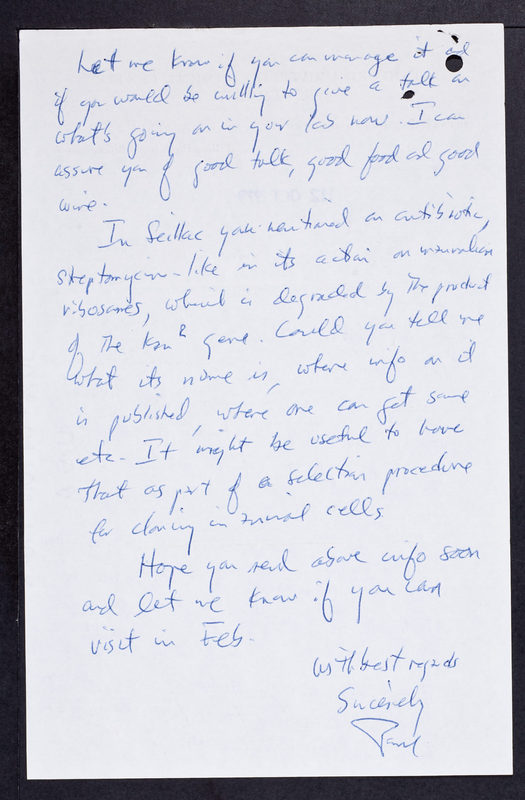 Let me know if you can manage it and
if you would be willing to give a talk on
what's going on in your lab now. I can
assure you of good talk, good food and good
wine.
In Seillac you mentioned an antibiotic,
streptomycin-like in its action on mammalian
ribosomes, which is degraded by the product
of the Kan R gene. Could you tell me
what its name is, where info on it
is published, where one can get some
etc. It might be useful to have
that as part of a selection procedure
for cloning in animal cells
Hope you send above info soon
and let me know if you can
visit in Feb.
With best regards
Sincerely
Paul